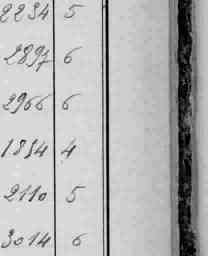 2234 5
2897 6
2966 6
1834 4
2110 5
3014 6